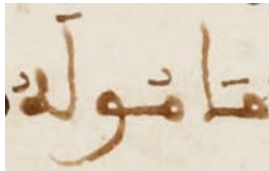 مَامُولَهُ